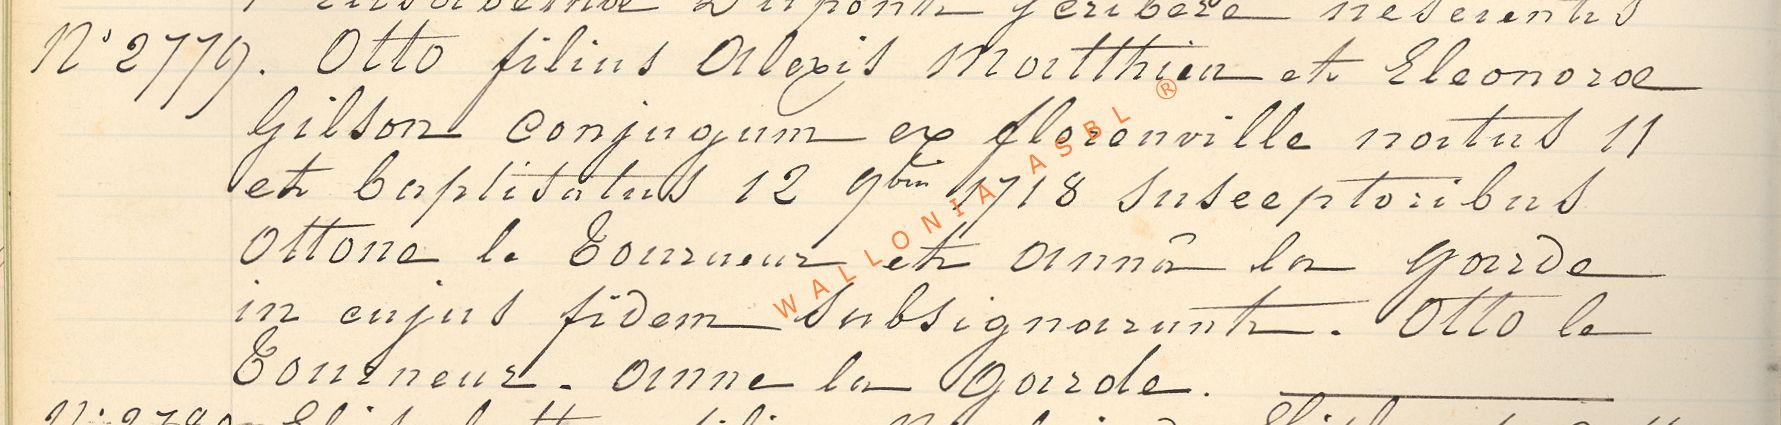 Dupont scribere nescientis
N° 2779. Otto filius Alexis Matthieu et Eleonorae
Gilson conjugum ex florenville natus 11
et baptisatus 12 9bris 1718 susceptoribus
Ottone le Tourneur et Annâ la garde
in cujus fidem subsignarunt. Otto le
Tourneur. Anne la Garde.
N° 2780
WALLONIA ASBL ®